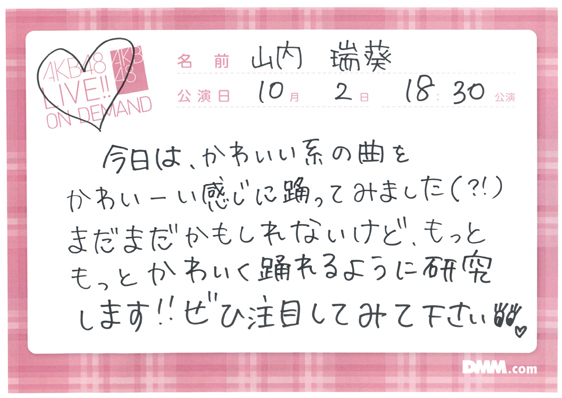 AKB48
LIVE!!
ON DEMAND
AKB
48
名前 山内 瑞葵
公演日 10月 2日 18:30公演
今日は、かわいい系の曲を
かわいーい感じに踊ってみました(?!)
まだまだかもしれないけど、もっと
もっとかわいく踊れるように研究
します!!ぜひ注目してみて下さい
DMM.com